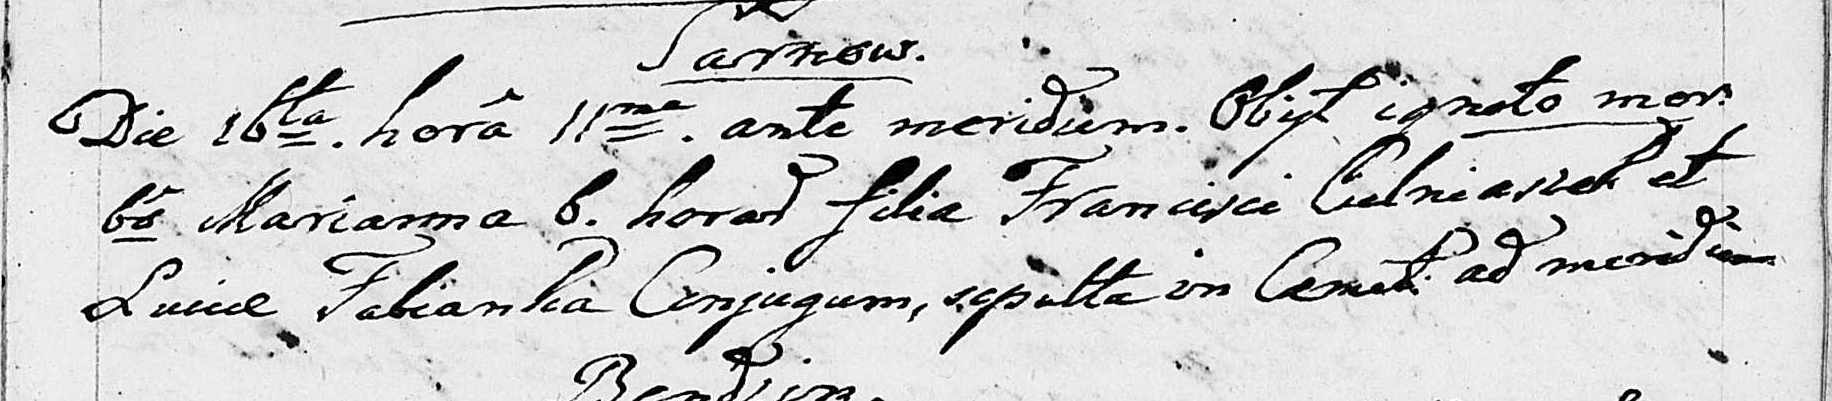 Tarnow.
Die 16ta. horâ 11me. ante meridiem. Obijt ignoto mor:
bô Marianna 6. horar filia Francisci Cielniaszek et
Luciæ Fabianka Conjugum, sepulta in Cæmet: ad meridiem
Bendzin.